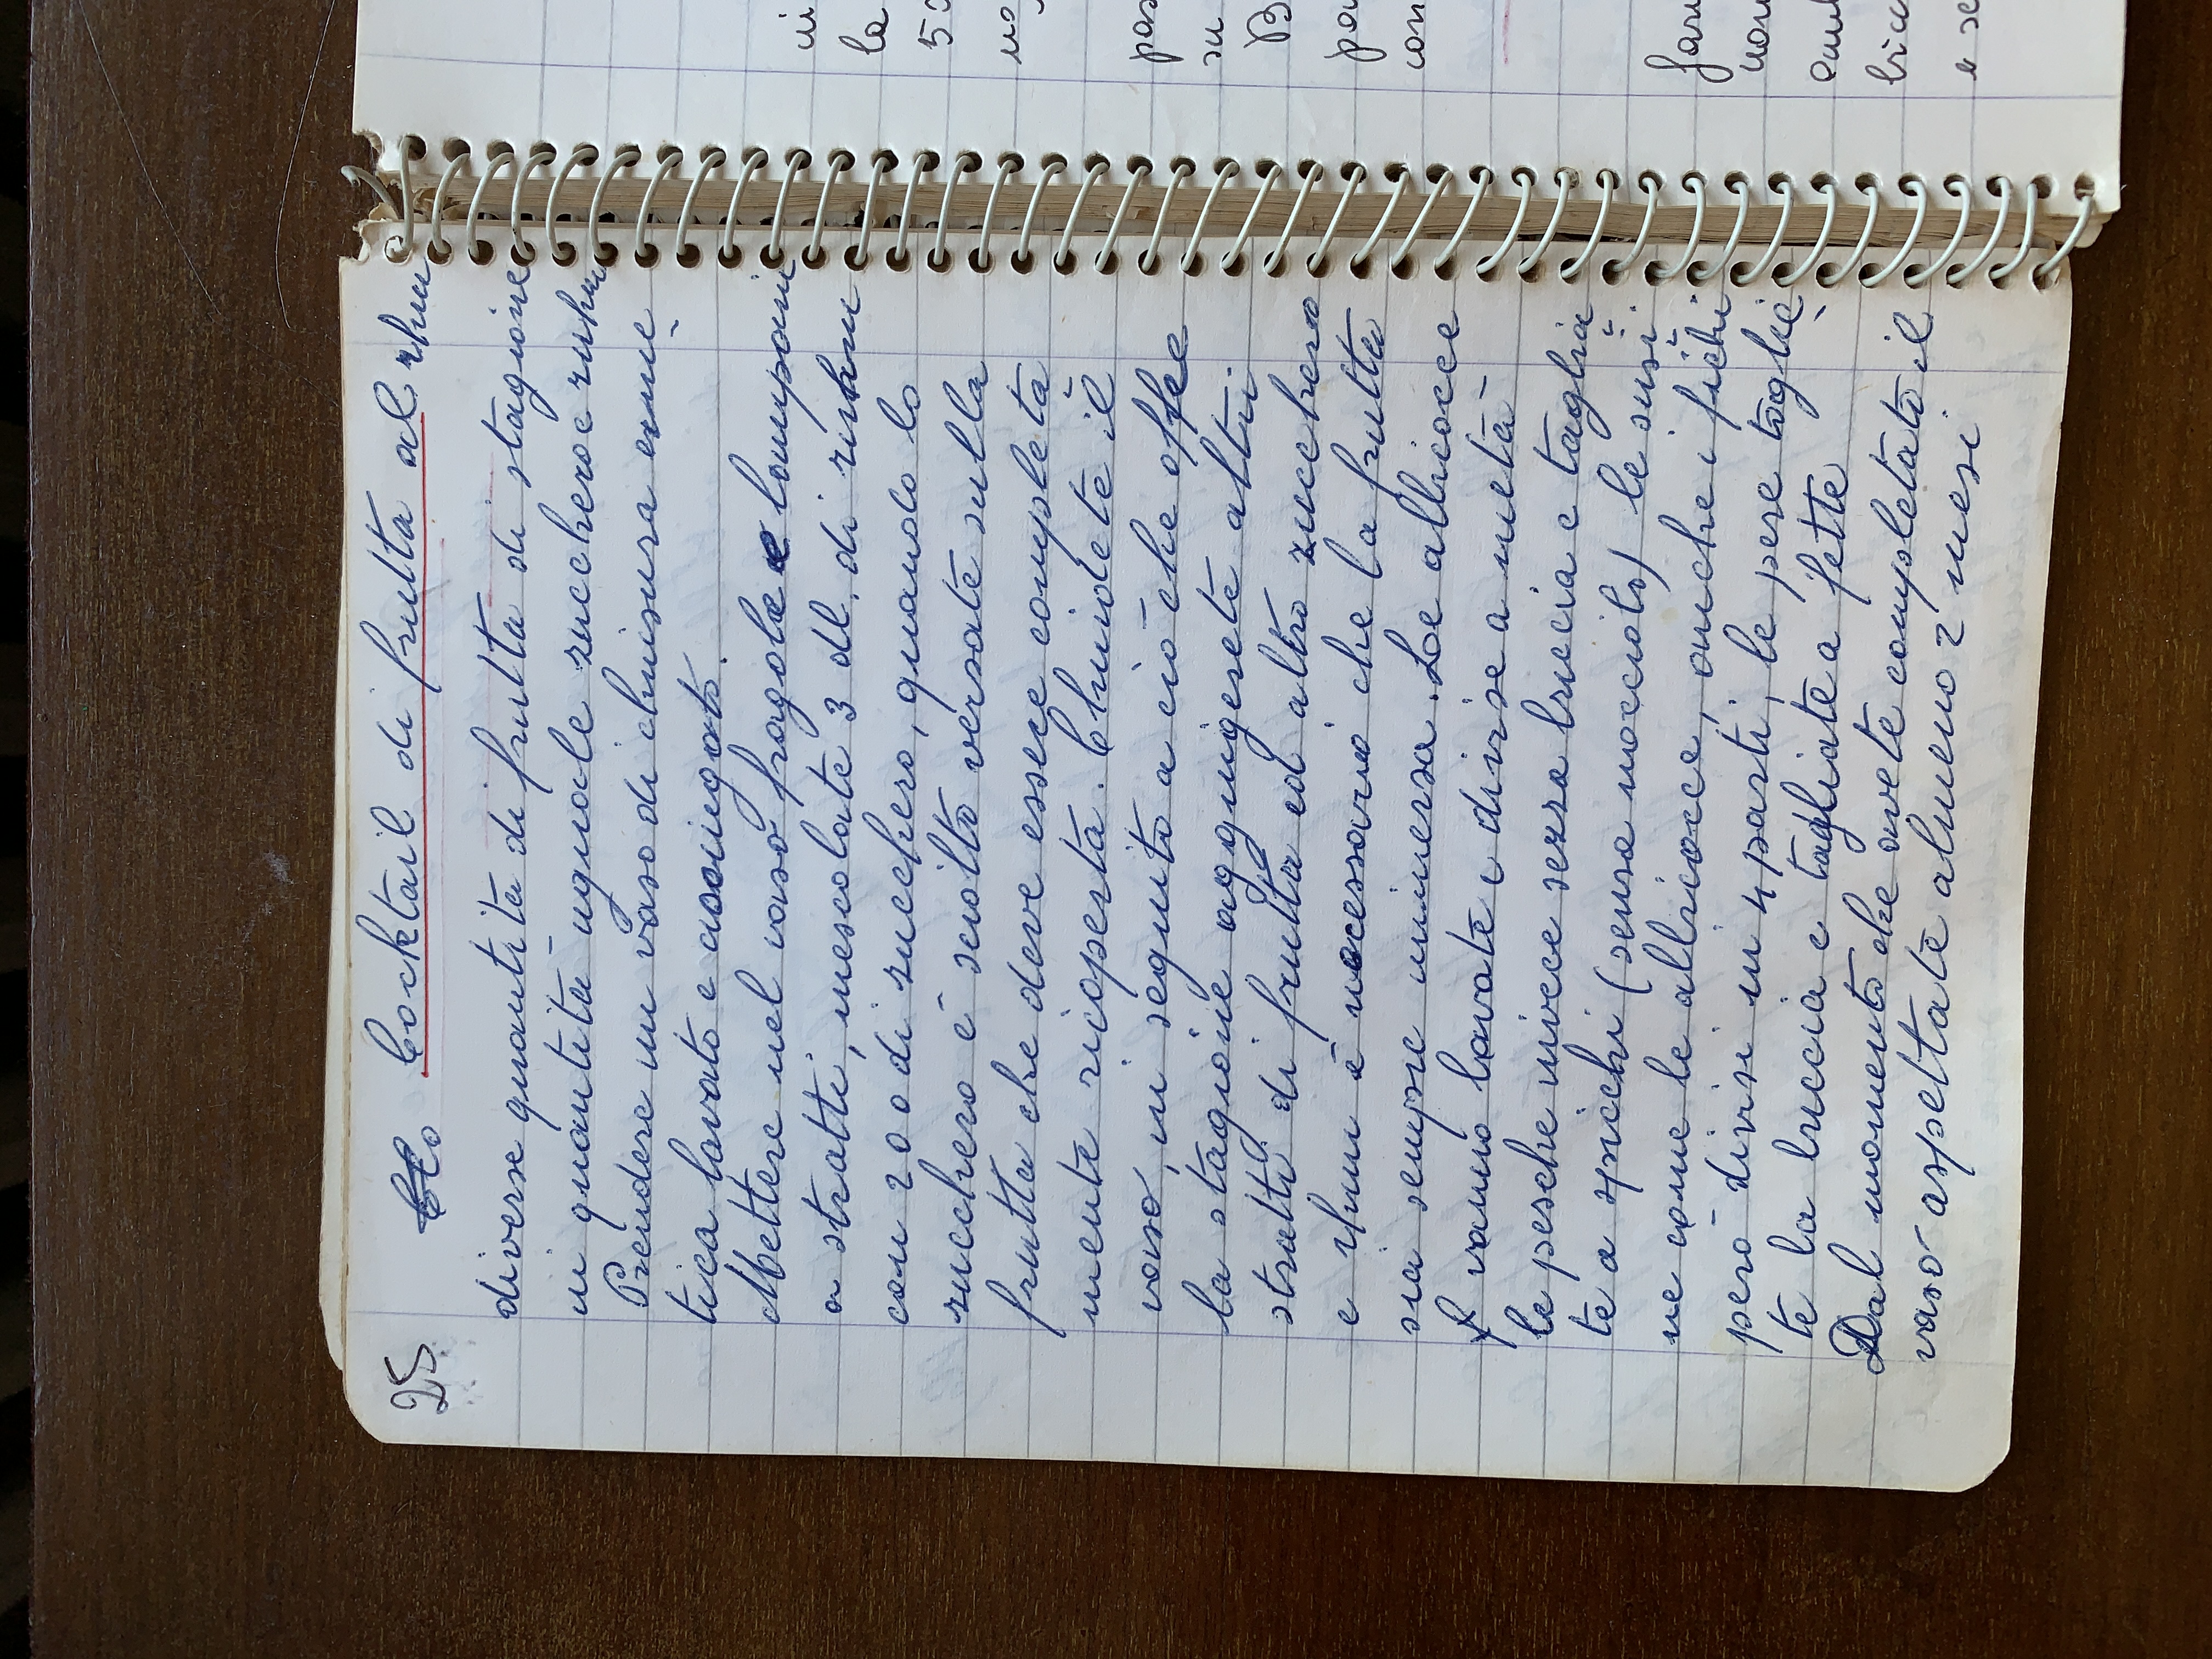 25 Cocktail di frutta al rhum
diverse quantità di frutta di stagione
in quantità uguale zucchero e ruhm
Prendere un vaso di chiusura erme
tica lavato e asciugato.
Mettere nel vaso fragole e lamponi
a stratti, mescolate 3 dl. di ruhm
con 200 di zucchero, quando lo
zucchero è sciolto versate sulla
frutta che deve essere completa
mente ricoperta. Chiudete il
vaso, in seguito a ciò che offre
la stagione aggiungerete altri
stratti di frutta ed altro zucchero
e rhum è necessario che la frutta
sia sempre immersa. Le albicocce
vanno lavate e divise a metà
le pesche invece sezza buccia e taglia
te a spicchi (senza nocciolo) le susi
ne come le albicocce, anche i fichi
però divisi in 4 parti, le pere toglie
te la buccia e tagliate a fette
Dal momento che avete completato il
vaso aspettate almeno 2 mesi
in
la
no
pas
su
B
con
e se